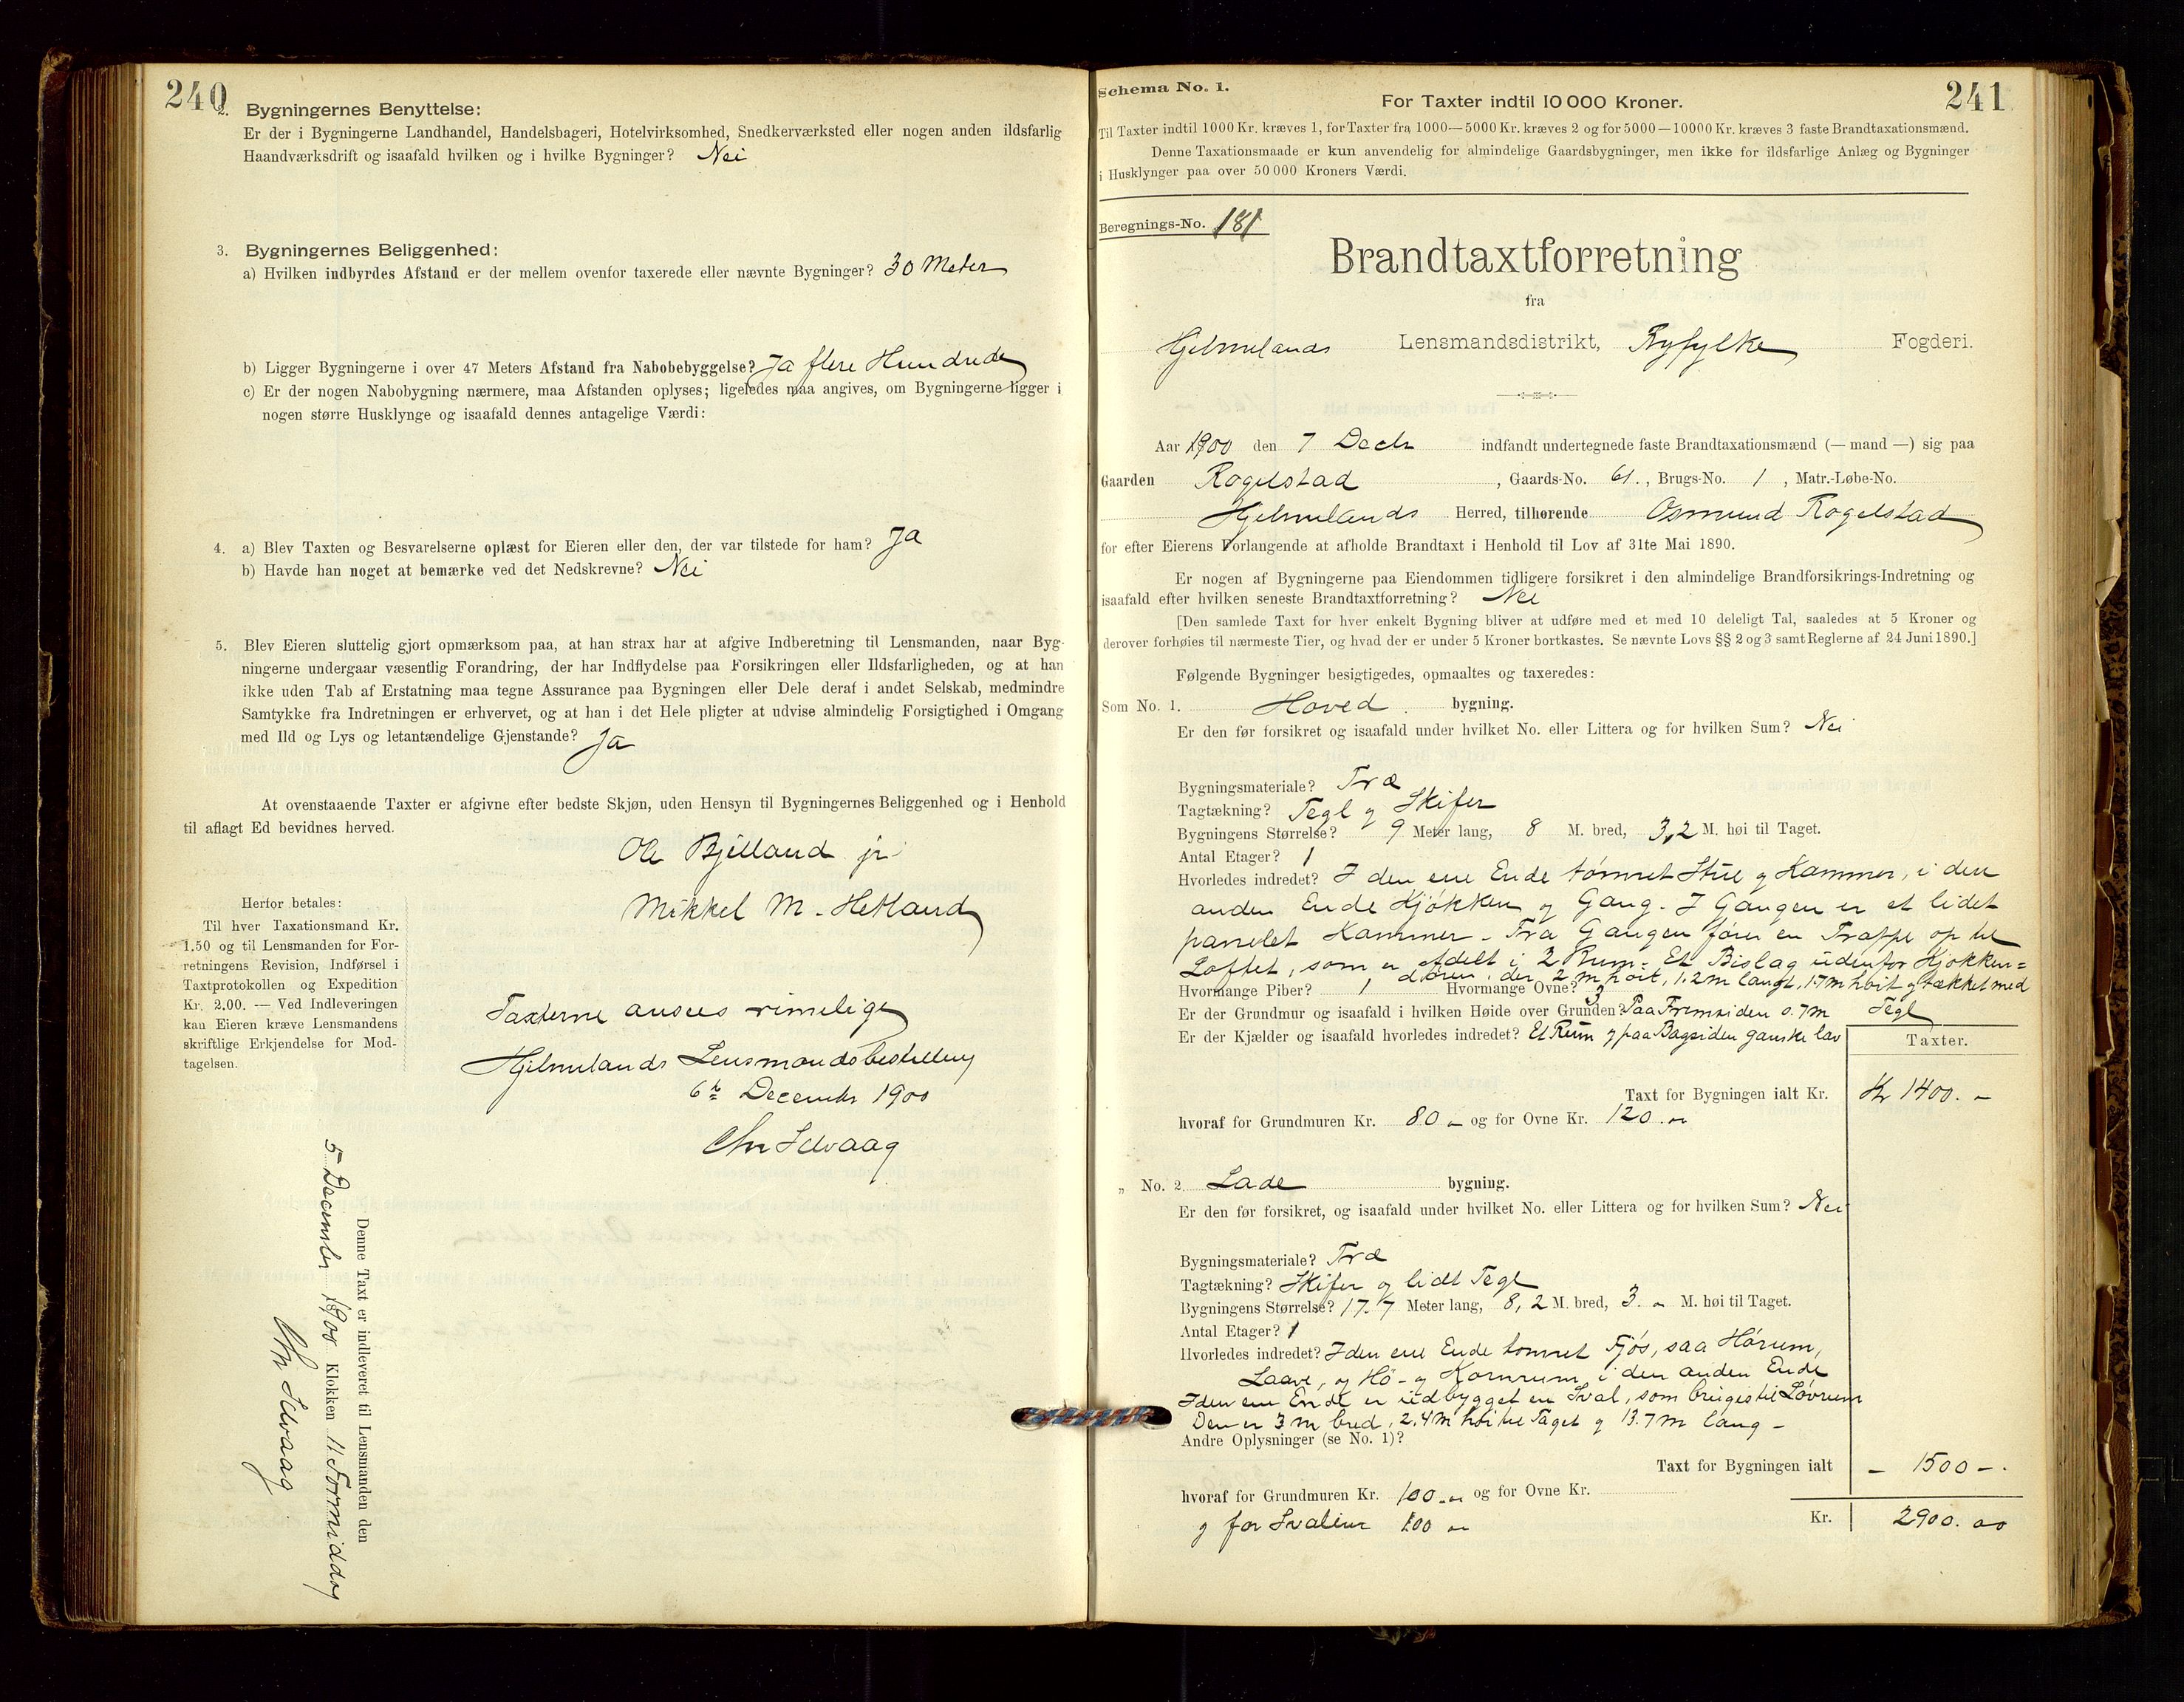 240
2. Bygningernes Benyttelse:
Er der i Bygningerne Landhandel, Handelsbageri, Hotelvirksomhed, Snedkerværksted eller nogen anden ildsfarlig
Haandværksdrift og isaafald hvilken og i hvilke Bygninger? Nei
3. Bygningernes Beliggenhed:
a) Hvilken indbyrdes Afstand er der mellem ovenfor taxerede eller nævnte Bygninger? 30 Meter
b) Ligger Bygningerne i over 47 Meters Afstand fra Nabobebyggelse? Ja flere Hundrede
c) Er der nogen Nabobygning nærmere, maa Afstanden oplyses; ligeledes maa angives, om Bygningerne ligger i
nogen større Husklynge og isaafald dennes antagelige Værdi:
4. a) Blev Taxten og Besvarelserne oplæst for Eieren eller den, der var tilstede for ham? Ja
b) Havde han noget at bemærke ved det Nedskrevne? Nei
5. Blev Eieren sluttelig gjort opmærksom paa, at han strax har at afgive Indberetning til Lensmanden, naar Byg-
ningerne undergaar væsentlig Forandring, der har Indflydelse paa Forsikringen eller Ildsfarligheden, og at han
ikke uden Tab af Erstatning maa tegne Assurance paa Bygningen eller Dele deraf i andet Selskab, medmindre
Samtykke fra Indretningen er erhvervet, og at han i det Hele pligter at udvise almindelig Forsigtighed i Omgang
med Ild og Lys og letantændelige Gjenstande? Ja
At ovenstaaende Taxter er afgivne efter bedste Skjøn, uden Hensyn til Bygningernes Beliggenhed og i Henhold
til aflagt Ed bevidnes herved.
Ole Bjelland jr
Mikkel M. Hetland
Herfor betales:
Til hver Taxationsmand Kr.
1.50 og til Lensmanden for For-
retningens Revision, Indførsel i
Taxtprotokollen og Expedition
Kr. 2.00. — Ved Indleveringen
kan Eieren kræve Lensmandens
skriftlige Erkjendelse for Mod-
tagelsen.
Taxterne ansees rimelige
Hjelmelands Lensmandsbestilling
6te December 1900
Chr Selvaag
Denne Taxt er indleveret til Lensmanden den
5 December 1900 Klokken 11 Formiddag
Chr Selvaag
Schema No. 1.
For Taxter indtil 10 000 Kroner.
241
Til Taxter indtil 1000 Kr. kræves 1, for Taxter fra 1000—5000 Kr. kræves 2 og for 5000—10000 Kr. kræves 3 faste Brandtaxationsmænd.
Denne Taxationsmaade er kun anvendelig for almindelige Gaardsbygninger, men ikke for ildsfarlige Anlæg og Bygninger
i Husklynger paa over 50 000 Kroners Værdi.
Beregnings-No. 181
Brandtaxtforretning
fra
Hjelmelands Lensmandsdistrikt, Ryfylke Fogderi.
Aar 1900 den 7 Decbr indfandt undertegnede faste Brandtaxationsmænd (— mand —) sig paa
Gaarden Rogelstad, Gaards-No. 61., Brugs-No. 1, Matr.-Løbe-No.
Hjelmelands Herred, tilhørende Osmund Rogelstad
for efter Eierens Forlangende at afholde Brandtaxt i Henhold til Lov af 31te Mai 1890.
Er nogen af Bygningerne paa Eiendommen tidligere forsikret i den almindelige Brandforsikrings-Indretning og
isaafald efter hvilken seneste Brandtaxtforretning? Nei
[Den samlede Taxt for hver enkelt Bygning bliver at udføre med et med 10 deleligt Tal, saaledes at 5 Kroner og
derover forhøies til nærmeste Tier, og hvad der er under 5 Kroner bortkastes. Se nævnte Lovs §§ 2 og 3 samt Reglerne af 24 Juni 1890.]
Følgende Bygninger besigtigedes, opmaaltes og taxeredes:
Som No. 1. Hoved bygning.
Er den før forsikret og isaafald under hvilket No. eller Littera og for hvilken Sum? Nei
Bygningsmateriale? Træ
Tagtækning? Tegl og Skifer
Bygningens Størrelse? 9 Meter lang, 8 M. bred, 3,2 M. høi til Taget.
Antal Etager? 1
Hvorledes indredet? I den ene Ende tømret Stue og Kammer, i den
anden Ende Kjøkken og Gang. I Gangen er et lidet
panelet Kammer. Fra Gangen fører en Trappe op til
Loftet, som er afdelt i 2 Rum. Et Bislag udenfor Kjøkken=
døren, der 2 m høit, 1.2 m langt, 1.7 m høit og tækket med
Hvormange Piber? 1 Hvormange Ovne? 3
Er der Grundmur og isaafald i hvilken Høide over Grunden? Paa Fremsiden 0.7 m Tegl
Er der Kjælder og isaafald hvorledes indredet? Et Rum og paa Bagsiden ganske lav
Taxter.
Taxt for Bygningen ialt Kr. Kr 1400. –
hvoraf for Grundmuren Kr. 80 „ og for Ovne Kr. 120 „
„ No. 2. Lade bygning.
Er den før forsikret, og isaafald under hvilket No. eller Littera og for hvilken Sum? Nei
Bygningsmateriale? Træ
Tagtækning? Skifer og lidt Tegl
Bygningens Størrelse? 17.7 Meter lang, 8,2 M. bred, 3. „ M. høi til Taget.
Antal Etager? 1
Hvorledes indredet? I den ene Ende tømret Fjøs, saa Hørum,
Laave, og Hø- og Kornrum i den anden Ende
I den ene Ende er udbygget en Sval, som bruges til Løvrum
Den er 3 m bred, 2,4 m høi til Taget og 13.7 m lang –
Andre Oplysninger (se No. 1)?
Taxt for Bygningen ialt – 1500 –.
hvoraf for Grundmuren Kr. 100 „ og for Ovne Kr.
og for Svalene 100 „
Kr. 2900. 00